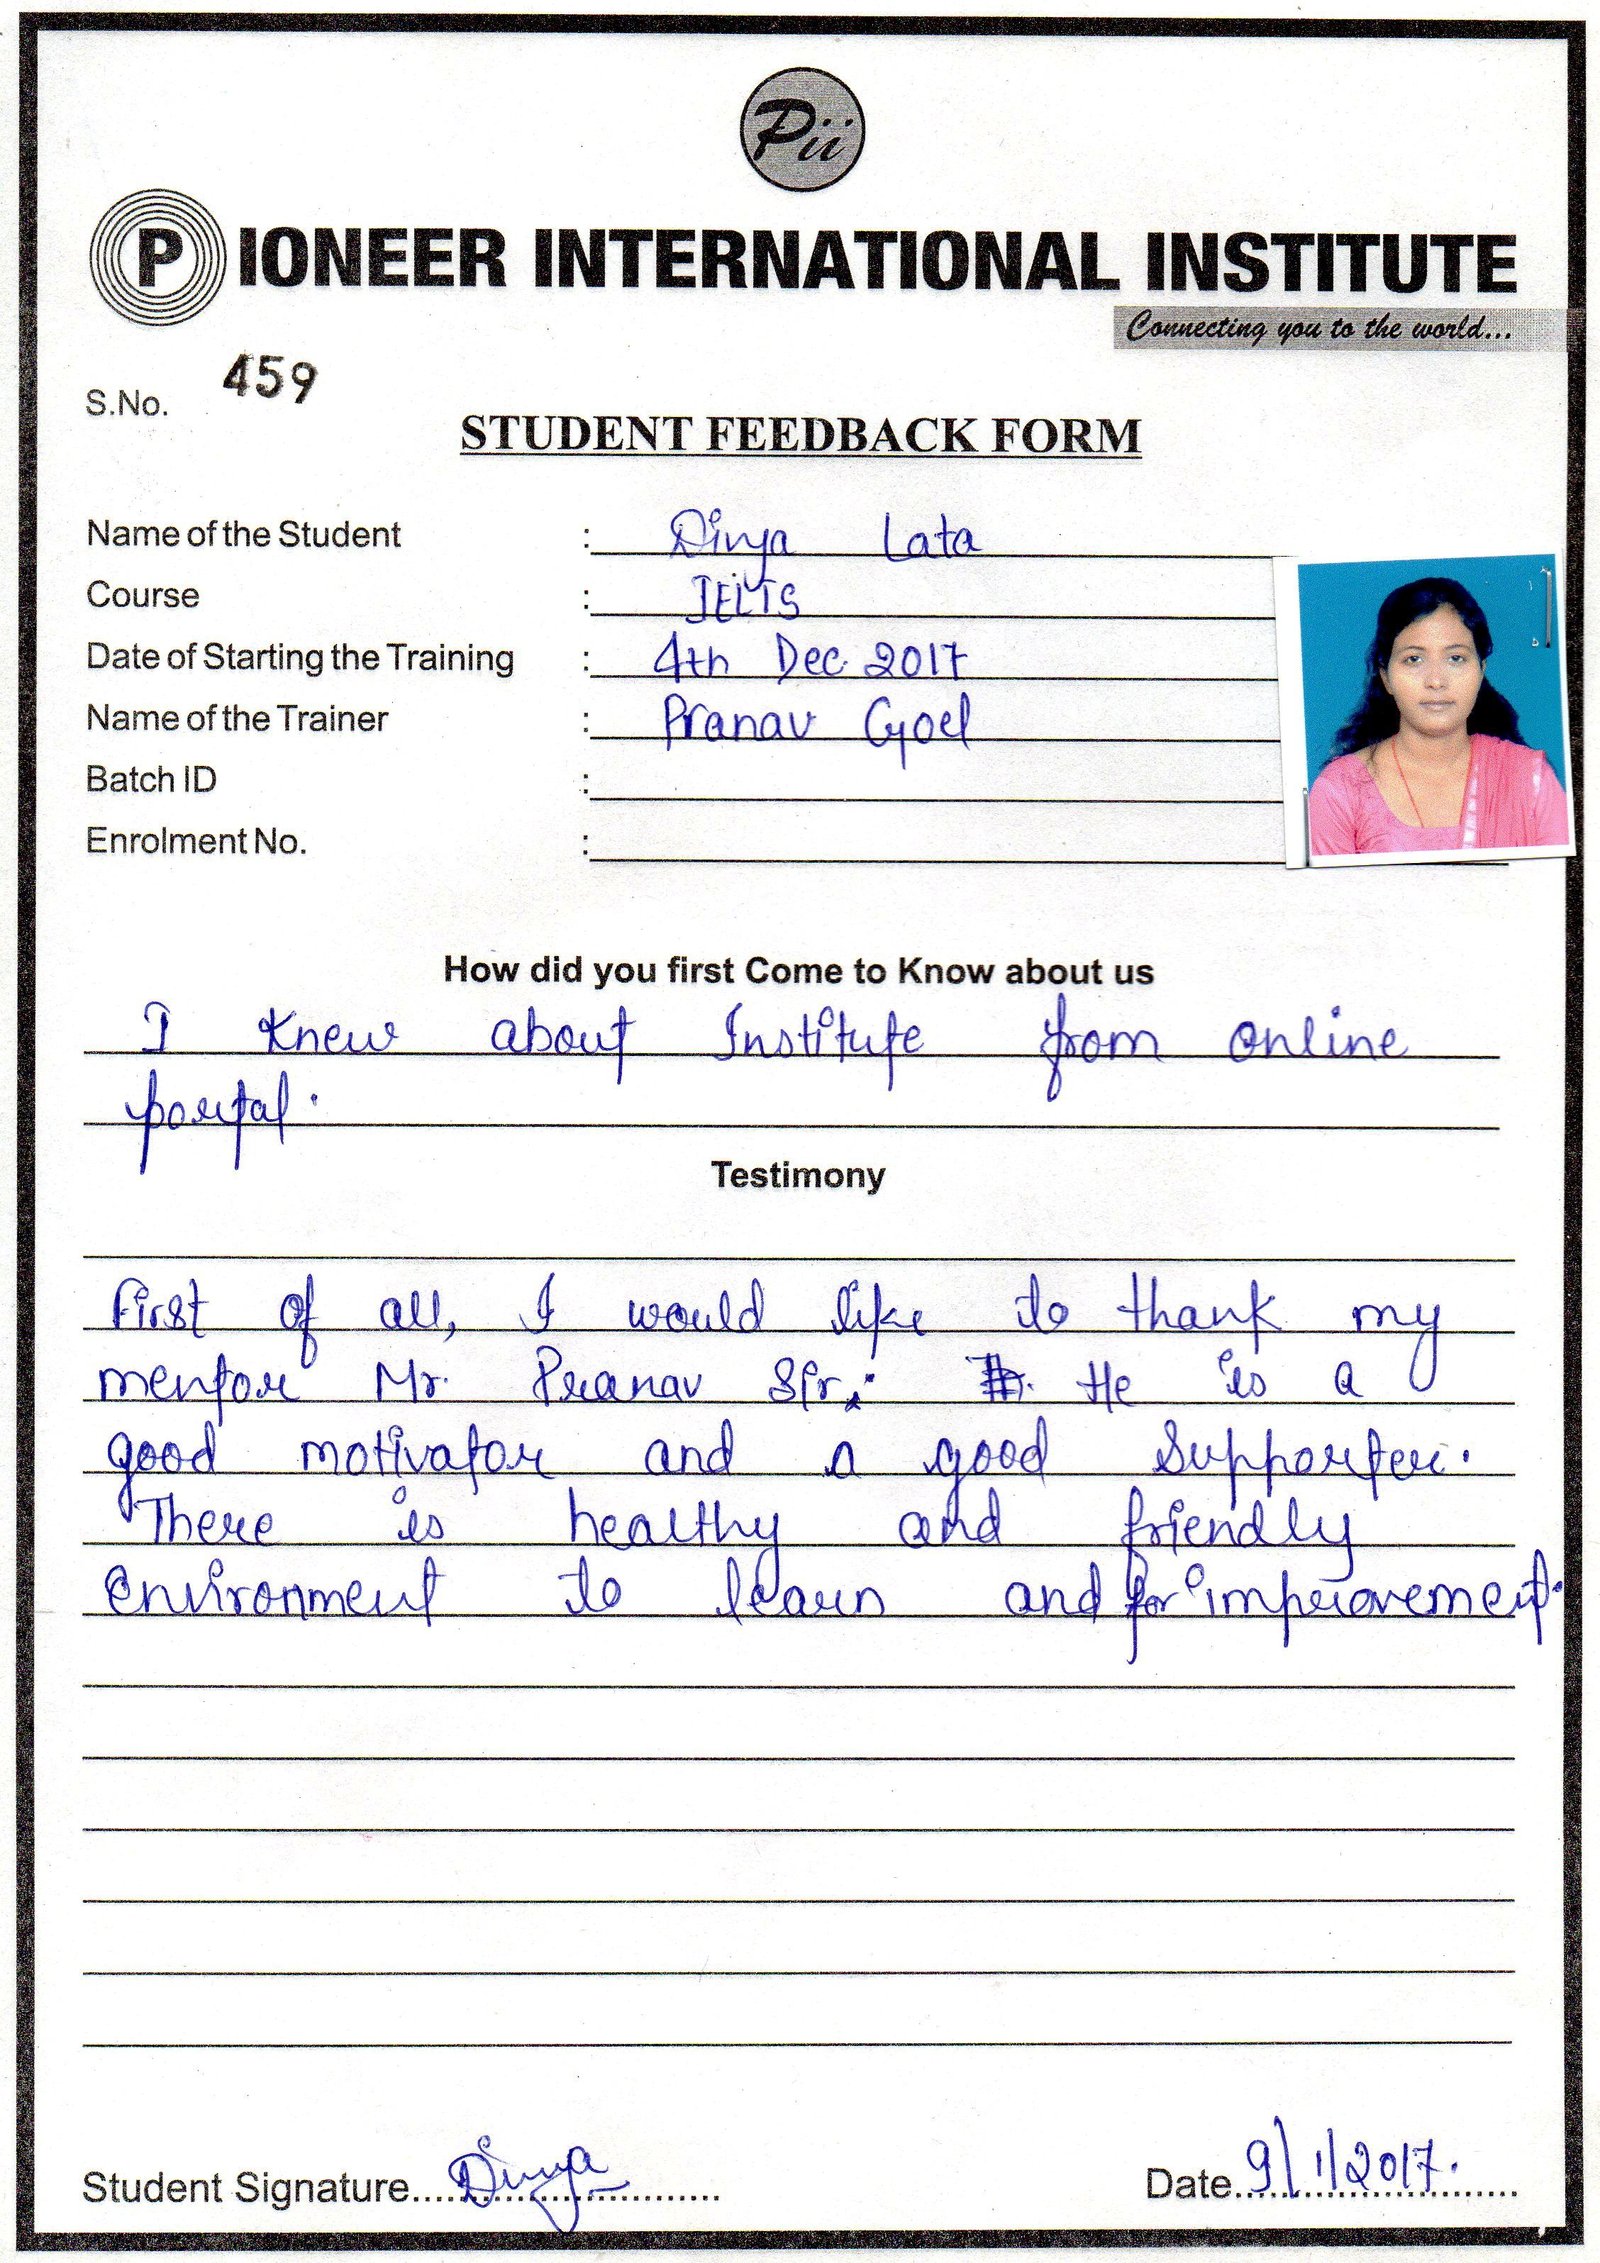 Pii
PIONEER INTERNATIONAL INSTITUTE
Connecting you to the world...
S.No. 459
STUDENT FEEDBACK FORM
Name of the Student : Divya Lata
Course : IELTS
Date of Starting the Training : 4th Dec. 2017
Name of the Trainer : Pranav Goel
Batch ID :
Enrolment No. :
How did you first Come to Know about us
I Knew about Institute from online
portal.
Testimony
First of all, I would like to thank my
mentor Mr. Pranav Sir. He is a
good motivator and a good Supporter.
There is healthy and friendly
environment to learn and for improvement.
Student Signature.....Divya.....
Date..9/1/2017.